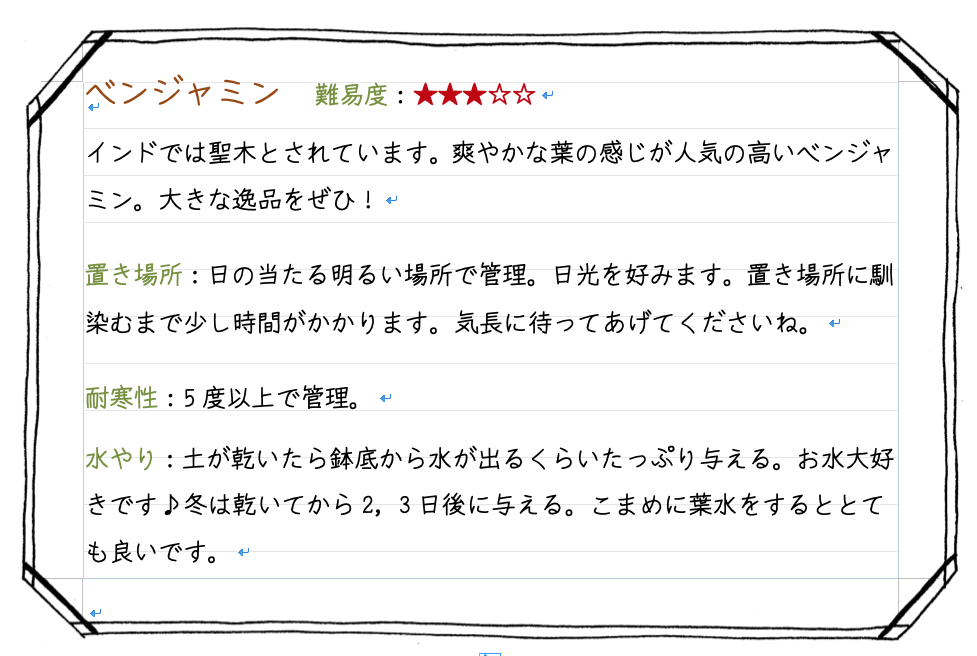 ベンジャミン　難易度：★★★☆☆
インドでは聖木とされています。爽やかな葉の感じが人気の高いベンジャ
ミン。大きな逸品をぜひ！
置き場所：日の当たる明るい場所で管理。日光を好みます。置き場所に馴
染むまで少し時間がかかります。気長に待ってあげてくださいね。
耐寒性：5 度以上で管理。
水やり：土が乾いたら鉢底から水が出るくらいたっぷり与える。お水大好
きです♪冬は乾いてから 2，3 日後に与える。こまめに葉水をするととて
も良いです。